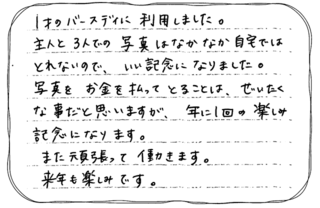 1才のバースディに利用しました。
主人と3人での写真はなかなか自宅では
とれないので、いい記念になりました。
写真をお金を払ってとることは、ぜいたく
な事だと思いますが、年に1回の楽しみ
記念になります。
また頑張って働きます。
来年も楽しみです。